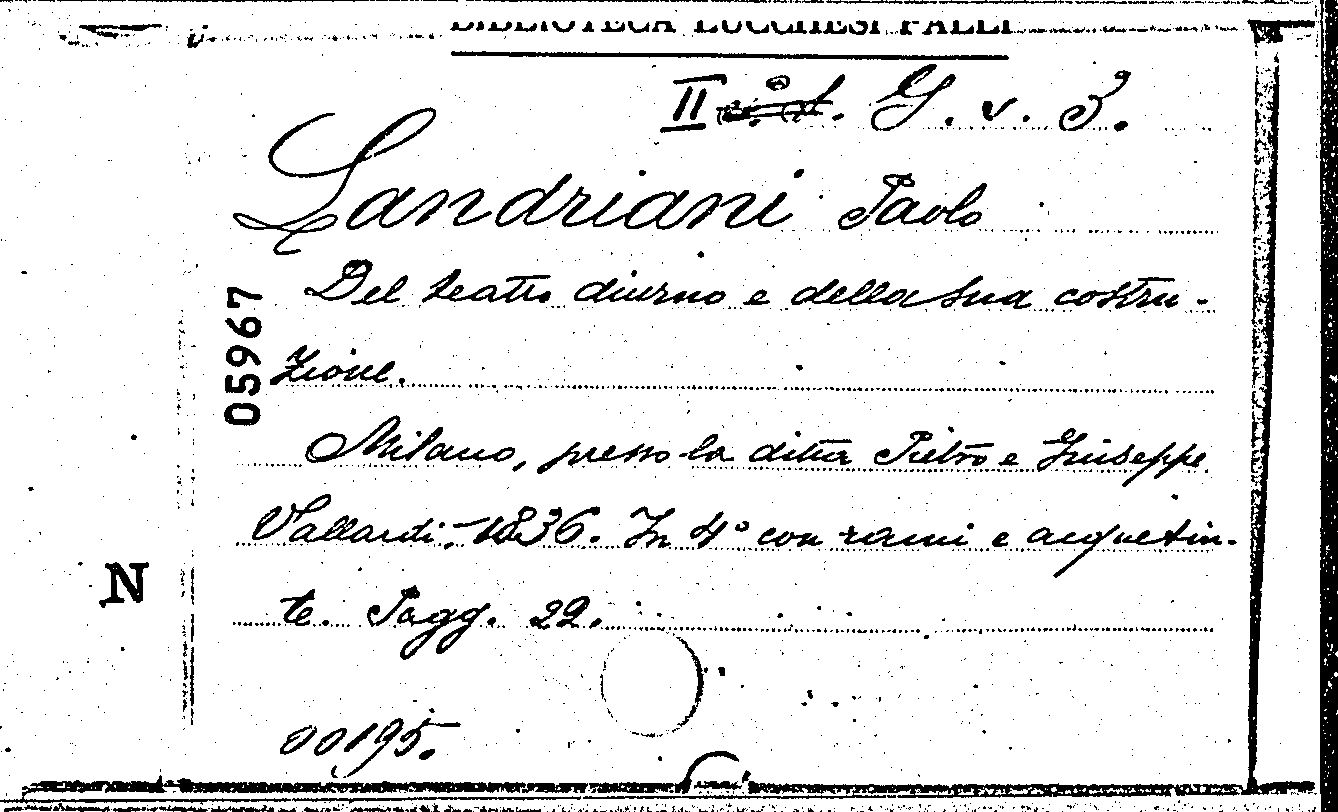 BIBLIOTECA LUCCHESI PALLI
II G. v. 3.
Landriani Paolo
Del teatro diurno e della sua costru-
zione.
05967
Milano, presso la ditta Pietro e Giuseppe
Vallardi, 1836. In 4° con rami e acquetin-
te. Pagg. 22.
N
00195.